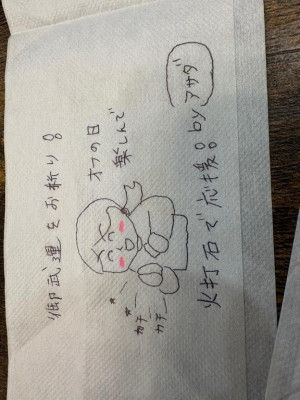 御武運をお祈り。
オフの日
楽しんで
カチ
カチ
火打石で応援。by アサダ